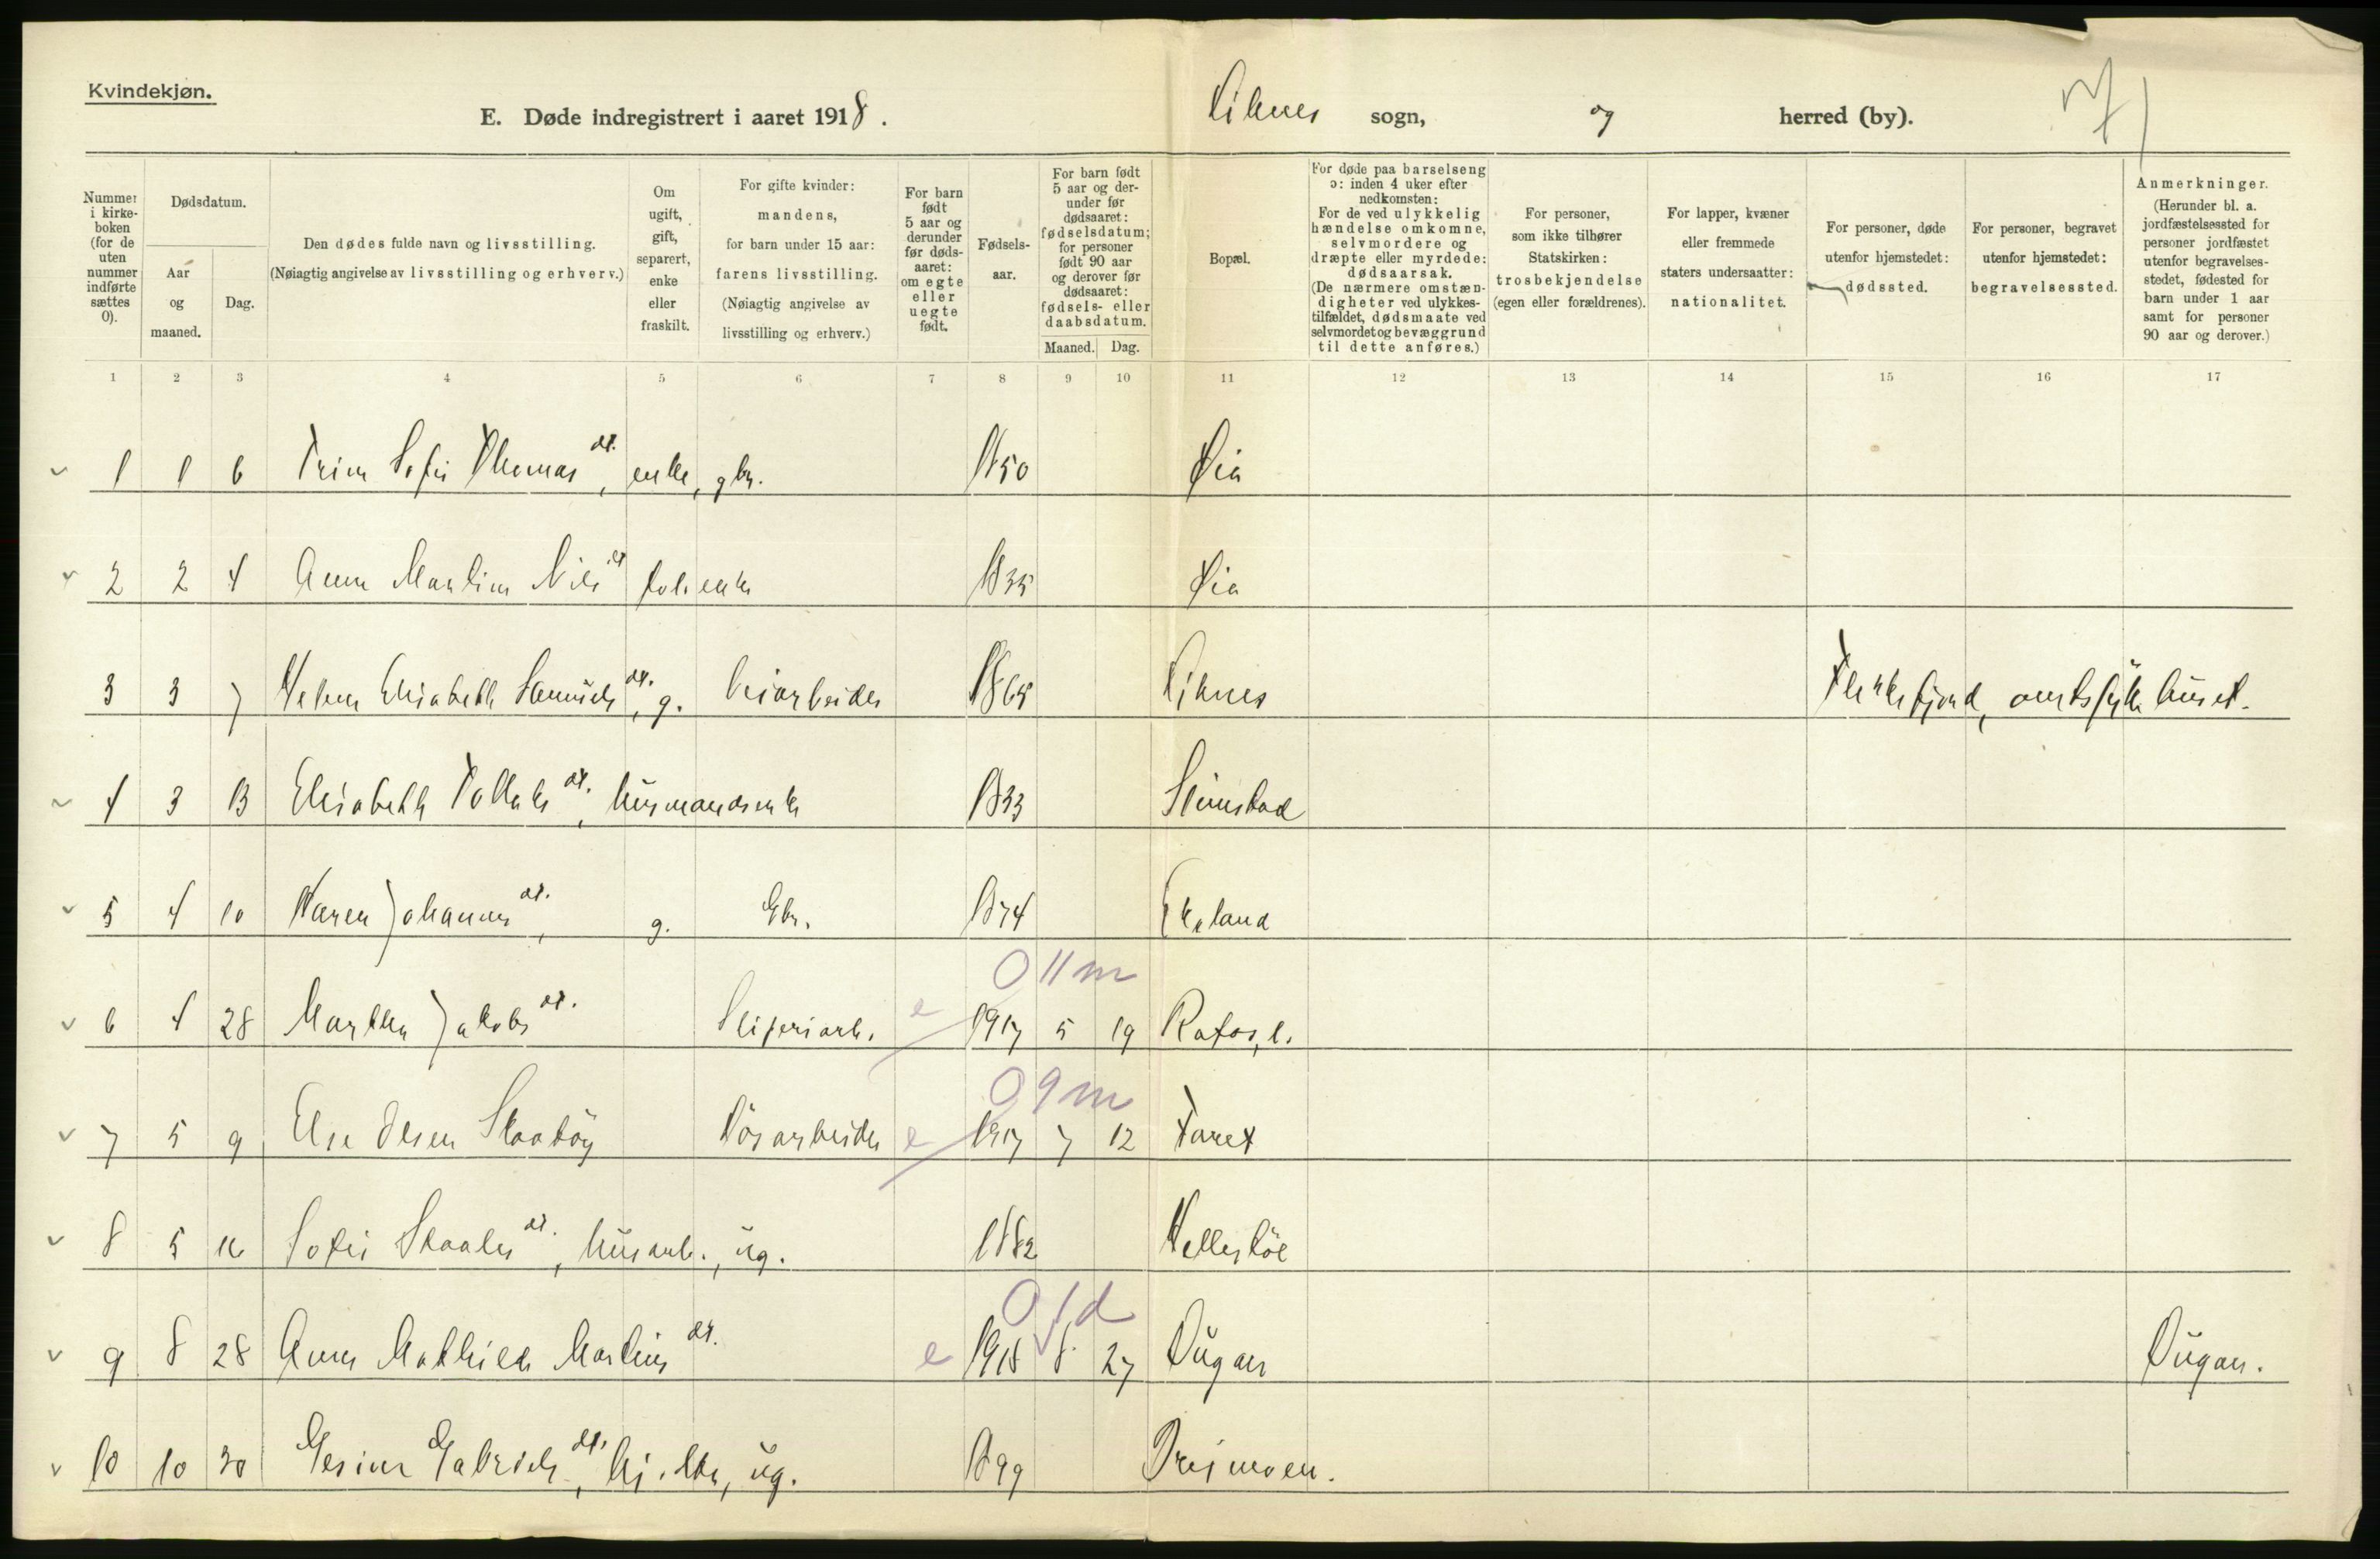 Kvindekjøn.
E. Døde indregistrert i aaret 1918. Liknes sogn, og herred (by).
Nummer i kirkeboken (for de uten nummer indførte sættes 0).
Dødsdatum.
Aar og maaned.
Dag.
Den dødes fulde navn og livsstilling.
(Nøiagtig angivelse av livsstilling og erhverv.)
Om ugift, gift, separert, enke eller fraskilt.
For gifte kvinder: mandens, for barn under 15 aar: farens livsstilling. (Nøiagtig angivelse av livsstilling og erhverv.)
For barn født 5 aar og derunder før dødsaaret: om egte eller uegte født.
Fødselsaar.
For barn født 5 aar og derunder før dødsaaret: fødselsdatum; for personer født 90 aar og derover før dødsaaret: fødsels- eller daabsdatum.
Maaned. Dag.
Bopæl.
For døde paa barselseng ɔ: inden 4 uker efter nedkomsten: For de ved ulykkelig hændelse omkomne, selvmordere og dræpte eller myrdede: dødsaarsak. (De nærmere omstændigheter ved ulykkestilfældet, dødsmaate ved selvmordet og bevæggrund til dette anføres.)
For personer, som ikke tilhører Statskirken: trosbekjendelse (egen eller forældrenes).
For lapper, kvæner eller fremmede staters undersaatter: nationalitet.
For personer, døde utenfor hjemstedet: dødssted.
For personer, begravet utenfor hjemstedet: begravelsessted.
Anmerkninger. (Herunder bl. a. jordfæstelsessted for personer jordfæstet utenfor begravelsesstedet, fødested for barn under 1 aar samt for personer 90 aar og derover.)
1 2 3 4 5 6 7 8 9 10 11 12 13 14 15 16 17
1 1 6 Trine Sofie Thomasdt., enke, gbr. 1850 Øia
2 2 4 Anna Martine Nilsdt. enke 1835 Øia
3 3 7 Helene Elisabeth Samuelsdt., g. Veiarbeider 1865 Liknes Flekkefjord, amtssykehuset.
4 3 13 Elisabeth Tollaksdt., husmandsenke 1833 Slimstad
5 4 10 Karen Johannesdt., g. Gbr. 1874 Ekeland
0 11 m
6 4 28 Marthea Jakobsdt. Sliperiarb. e 1917 5 19 Rafos, l.
0 9 m
7 5 9 Else Olsen Skaatøy Løsarbeider e 1917 7 12 Faret
8 5 16 Sofie Skaalesdt., husarb., ug. 1882 Hellestøl
0 1 d
9 8 28 Anna Mathilde Martinsdt. e 1918 8 27 Dugan Dugan.
10 10 30 Gesine Gabrielsdt., ug. 1899 Dreimoen.